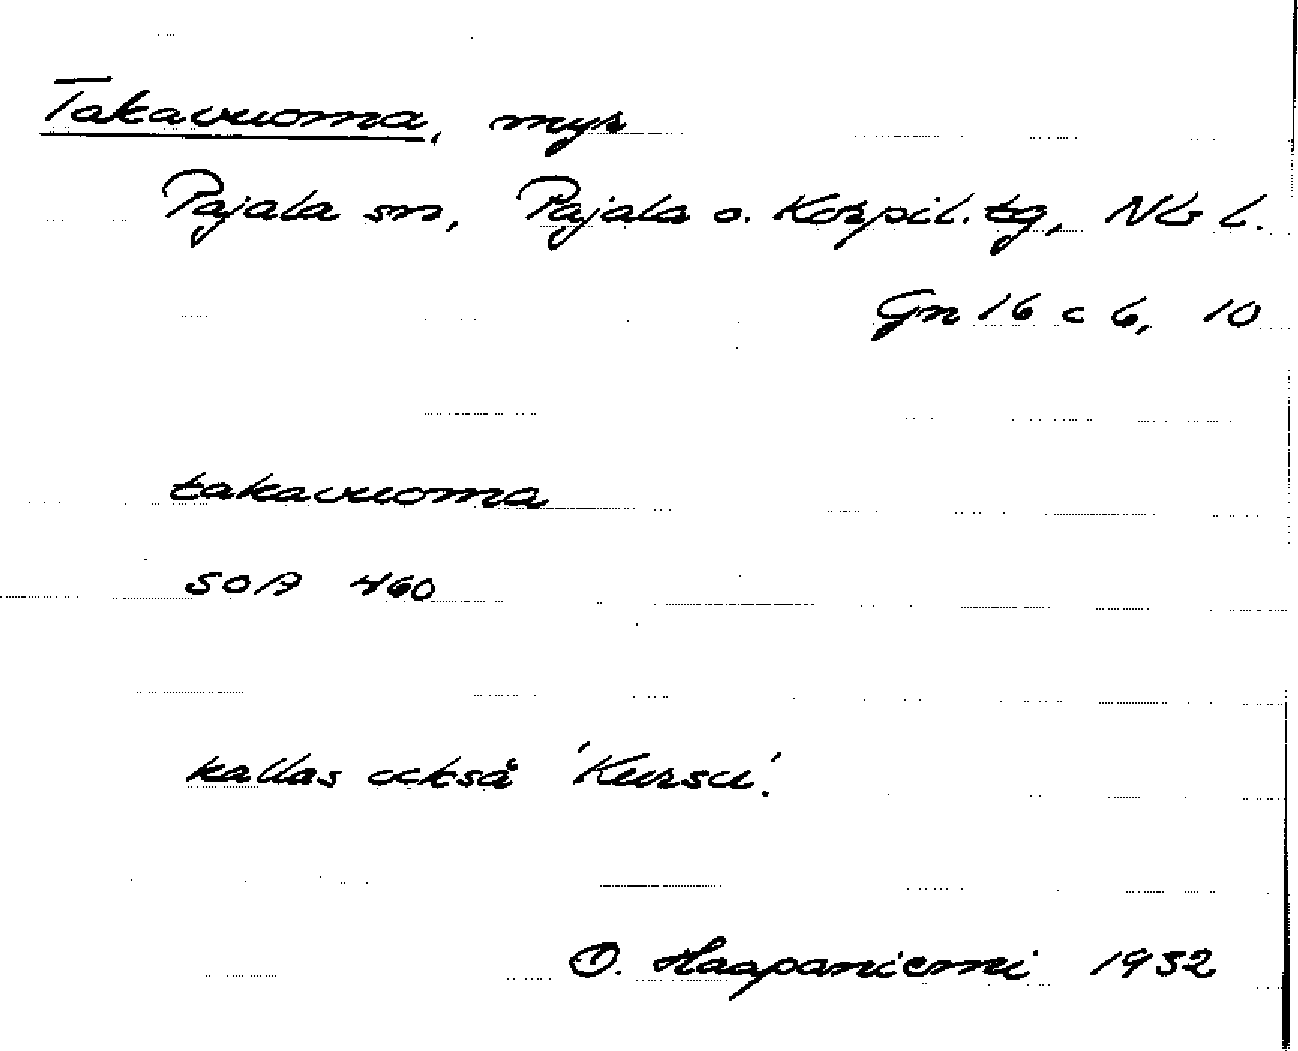 Takavuoma, myr
Pajala sn, Pajala o. Korpil. tg, Nb L.
Gn 16 c 6, 10
takavuoma
SOA 460
kallas också 'Kursu'.
O. Haapaniemi 1932